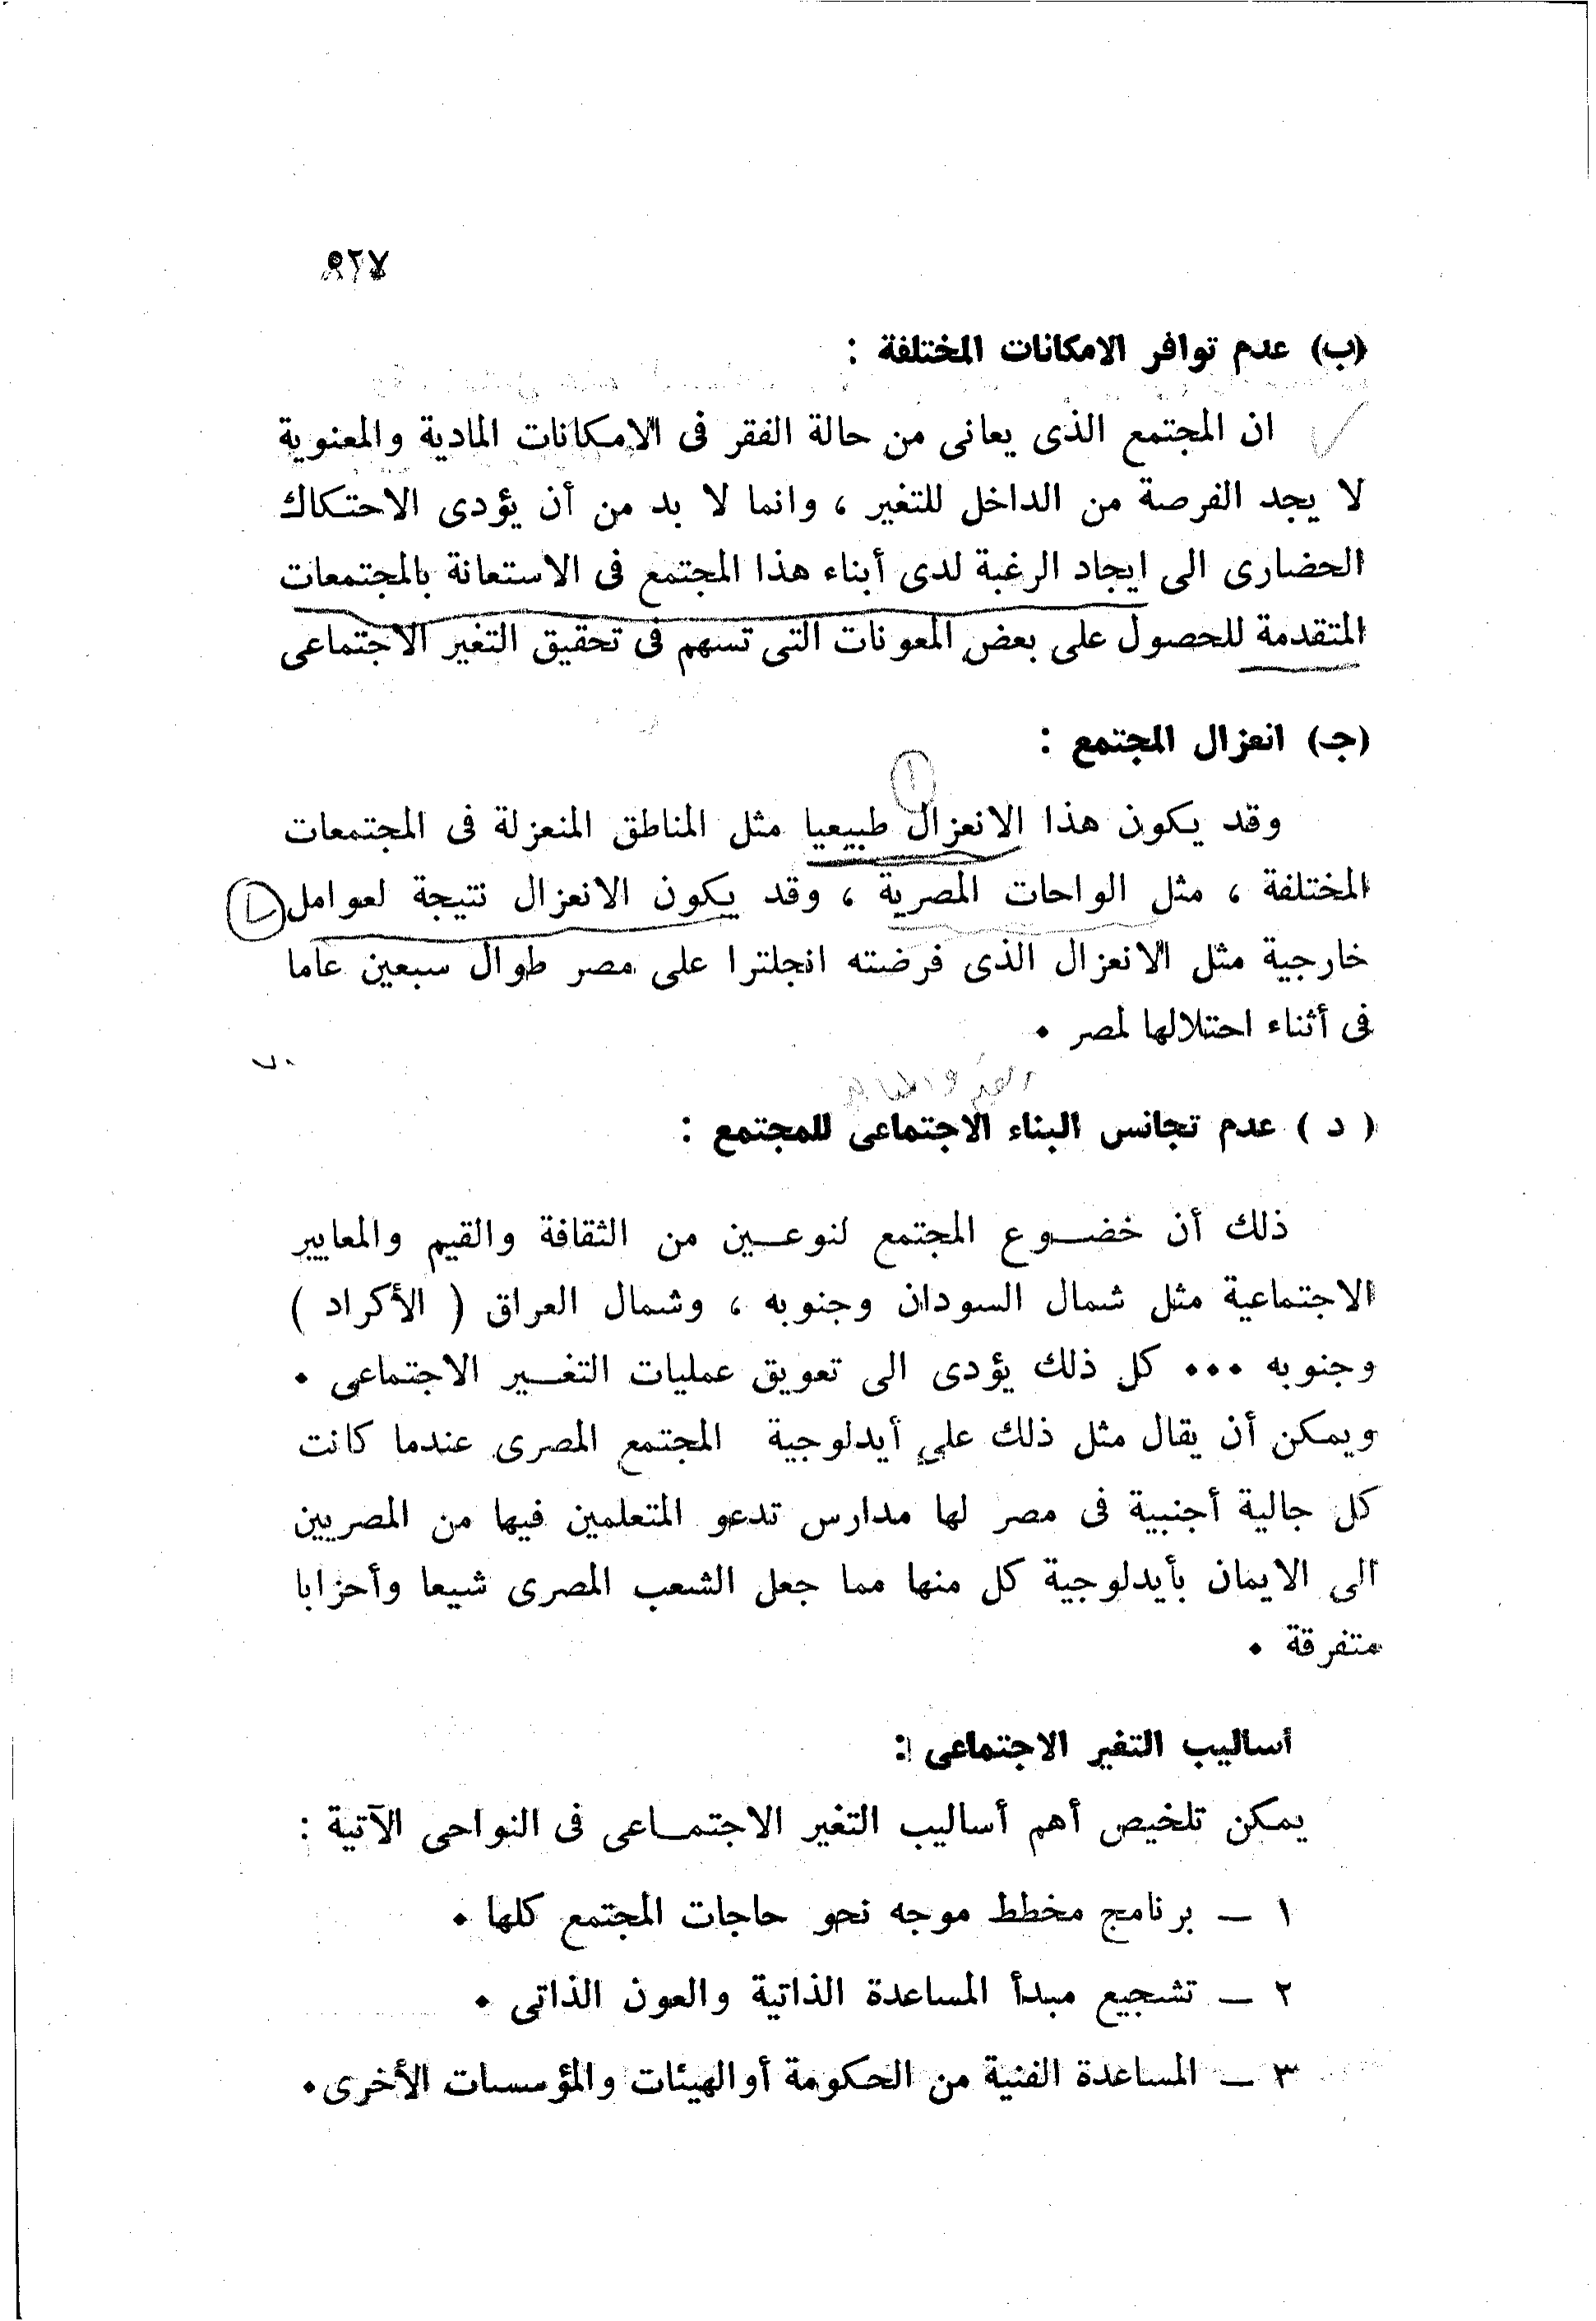 ٥٢٧
(ب) عدم توافر الامكانات المختلفة :
ان المجتمع الذى يعانى من حالة الفقر فى الامكانات المادية والمعنوية
لا يجد الفرصة من الداخل للتغير ، وانما لا بد من أن يؤدى الاحتكاك
الحضارى الى ايجاد الرغبة لدى أبناء هذا المجتمع فى الاستعانة بالمجتمعات
المتقدمة للحصول على بعض المعونات التى تسهم فى تحقيق التغير الاجتماعى
(جـ) انعزال المجتمع :
١
وقد يكون هذا الانعزال طبيعيا مثل المناطق المنعزلة فى المجتمعات
المختلفة ، مثل الواحات المصرية ، وقد يكون الانعزال نتيجة لعوامل
خارجية مثل الانعزال الذى فرضته انجلترا على مصر طوال سبعين عاما
فى أثناء احتلالها لمصر ٠
( د ) عدم تجانس البناء الاجتماعى للمجتمع :
ذلك أن خضـوع المجتمع لنوعـين من الثقافة والقيم والمعايير
الاجتماعية مثل شمال السودان وجنوبه ، وشمال العراق ( الأكراد )
وجنوبه ٠٠٠ كل ذلك يؤدى الى تعويق عمليات التغـير الاجتماعى ٠
ويمكن أن يقال مثل ذلك على أيدلوجية المجتمع المصرى عندما كانت
كل جالية أجنبية فى مصر لها مدارس تدعو المتعلمين فيها من المصريين
الى الايمان بأيدلوجية كل منها مما جعل الشعب المصرى شيعا وأحزابا
متفرقة ٠
أساليب التغير الاجتماعى :
يمكن تلخيص أهم أساليب التغير الاجتمـاعى فى النواحى الآتية :
١ ـ برنامج مخطط موجه نحو حاجات المجتمع كلها ٠
٢ ـ تشجيع مبدأ المساعدة الذاتية والعون الذاتى ٠
٣ ـ المساعدة الفنية من الحكومة أوالهيئات والمؤسسات الأخرى٠